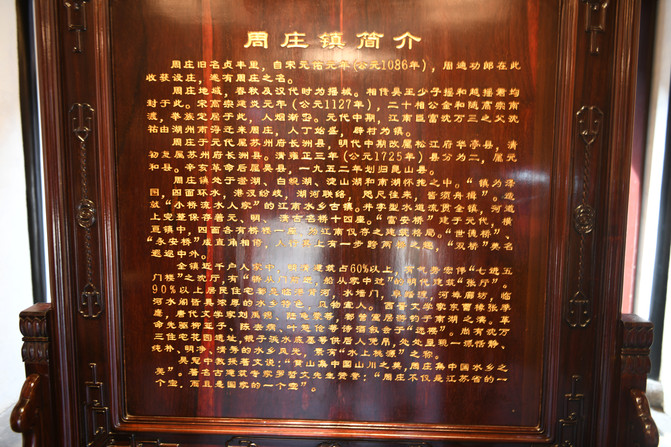 周庄镇简介
周庄旧名贞丰里，自宋元佑元年(公元1086年)，周迪功郎在此
收获设庄，遂有周庄之名。
周庄地域，春秋及汉代时为摇城。相传吴王少子摇和越摇君均
封于此。宋高宗建炎元年(公元1127年)，二十相公金和随高宗南
渡，举族定居于此，人烟渐密。元代中期，江南巨富沈万三之父沈
祐由湖州南浔迁来周庄，人丁始盛，辟村为镇。
周庄于元代属苏州府长洲县，明代中期改属松江府华亭县，清
初复属苏州府长洲县。清雍正三年(公元1725年)县分为二，属元
和县。辛亥革命后属吴县，一九五二年划归昆山县。
周庄镇处于澄湖、白蚬湖、淀山湖和南湖怀抱之中。“镇为泽
国，四面环水，港汊纷歧，湖河联络，咫尺往来，皆须舟楫”。造
就“小桥流水人家”的江南水乡古镇。井字型水道流贯全镇，河道
上完整保存着元、明、清古石桥十四座。“富安桥”建于元代，横
亘镇中，四面各有桥楼一座，为江南仅存之建筑格局。“世德桥”
“永安桥”成直角相衔，人行其上有一步跨两桥之趣，“双桥”美名
遐迩中外。
全镇近千户人家中，明清建筑占60%以上，有气势宏伟“七进五
门楼”之沈厅，有“轿从门前进，船从家中过”的明代建筑“张厅”。
90%以上居民住宅 临河，水墙门，旱踏渡，河埠廊坊，临
河水阁皆具浓厚的水乡特色，风物宜人。西晋文学家东亩桥张季
鹰，唐代文学家刘禹锡、陆龟蒙等，都曾寓居游钓于南湖之滨，革
命先驱柳亚子、陈去病、叶楚伧等诗酒叙会于“迷楼”。尚有沈万
三住宅花园遗址，银子浜水底墓等供居人凭吊，处处呈现一派恬静、
纯朴、明净、清秀的水乡风光，素有“水上桃源”之称。
吴冠中教授著文说：“黄山集中国山川之美，周庄集中国水乡之
美”。著名古建筑专家罗哲文先生赞誉：“周庄不仅是江苏省的一
个宝，而且是国家的一个宝”。